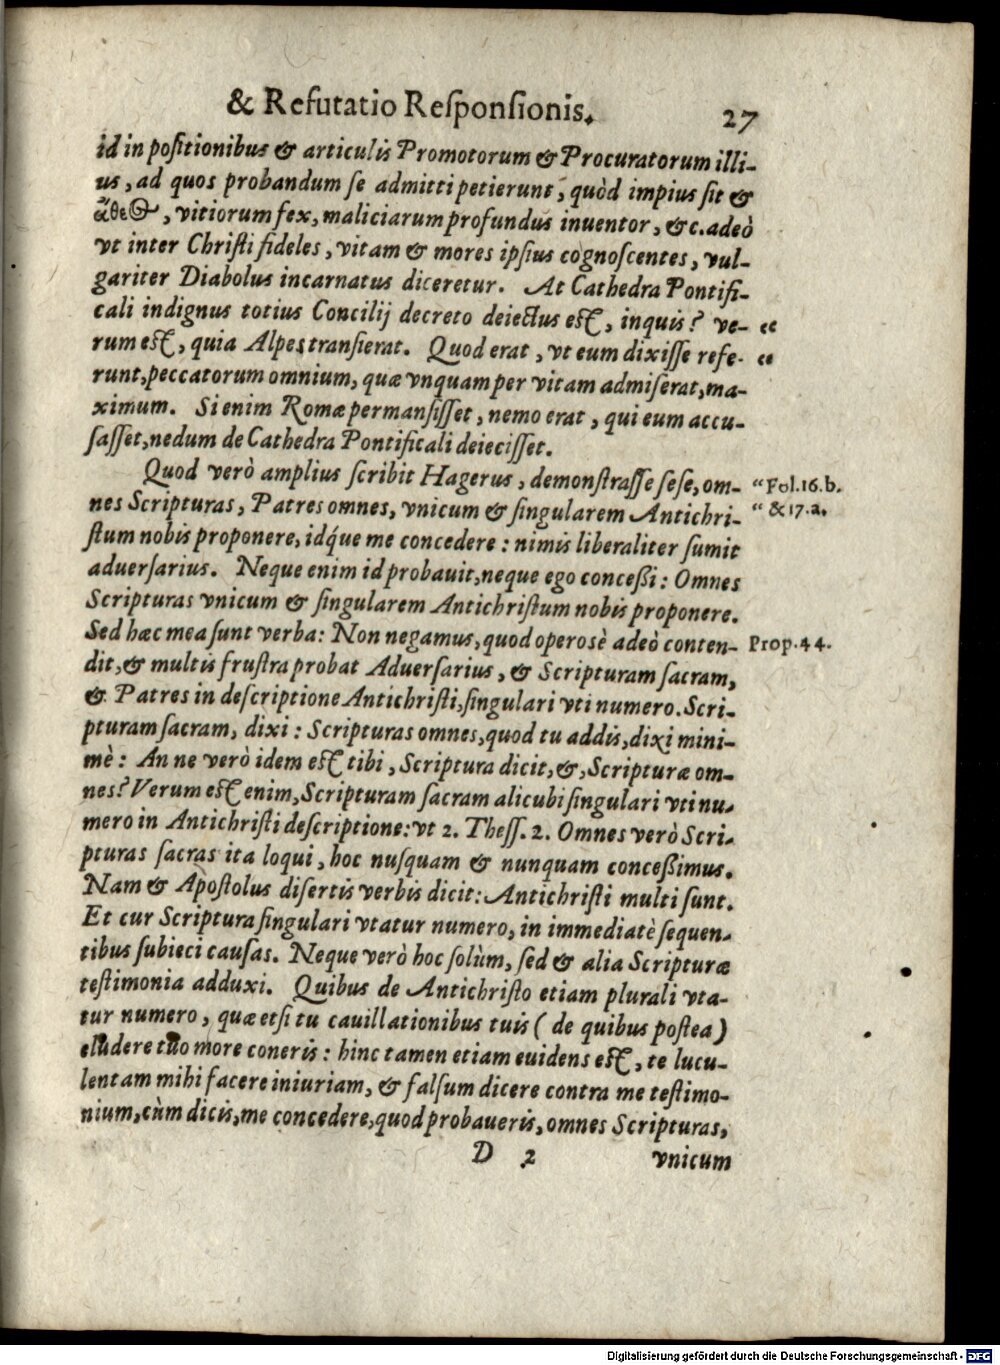 & Refutatio Responsionis. 27
id in positionibus & articulis Promotorum & Procuratorum illi-
us, ad quos probandum se admitti petierunt, quòd impius sit &
ἄθε@, vitiorum fex, maliciarum profundus inuentor, &c. adeò
vt inter Christi fideles, vitam & mores ipsius cognoscentes, vul-
gariter Diabolus incarnatus diceretur. At Cathedra Pontifi-
cali indignus totius Concilij decreto deiectus est, inquis? ve- “
rum est, quia Alpes transierat. Quod erat, vt eum dixisse refe- “
runt, peccatorum omnium, quæ vnquam per vitam admiserat, ma-
ximum. Si enim Romæ permansisset, nemo erat, qui eum accu-
sasset, nedum de Cathedra Pontificali deiecisset.
Quod verò amplius scribit Hagerus, demonstrasse sese, om- “ Fol. 16. b.
nes Scripturas, Patres omnes, vnicum & singularem Antichri- “ & 17. a.
stum nobis proponere, idq́ue me concedere: nimis liberaliter sumit
aduersarius. Neque enim id probauit, neque ego conceßi: Omnes
Scripturas vnicum & singularem Antichristum nobis proponere.
Sed hæc mea sunt verba: Non negamus, quod operosè adeò conten- Prop. 44.
dit, & multis frustra probat Aduersarius, & Scripturam sacram,
& Patres in descriptione Antichristi, singulari vti numero. Scri-
pturam sacram, dixi: Scripturas omnes, quod tu addis, dixi mini-
mè: An ne verò idem est tibi, Scriptura dicit, &, Scripturæ om-
nes? Verum est enim, Scripturam sacram alicubi singulari vti nu-
mero in Antichristi descriptione: vt 2. Thess. 2. Omnes verò Scri-
pturas sacras ita loqui, hoc nusquam & nunquam conceßimus.
Nam & Apostolus disertis verbis dicit: Antichristi multi sunt.
Et cur Scriptura singulari vtatur numero, in immediatè sequen-
tibus subieci causas. Neque verò hoc solùm, sed & alia Scripturæ
testimonia adduxi. Quibus de Antichristo etiam plurali vta-
tur numero, quæ etsi tu cauillationibus tuis ( de quibus postea )
eludere tuo more coneris: hinc tamen etiam euidens est, te lucu-
lentam mihi facere iniuriam, & falsum dicere contra me testimo-
nium, cùm dicis, me concedere, quod probaueris, omnes Scripturas,
D 2 vnicum
Digitalisierung gefördert durch die Deutsche Forschungsgemeinschaft - DFG